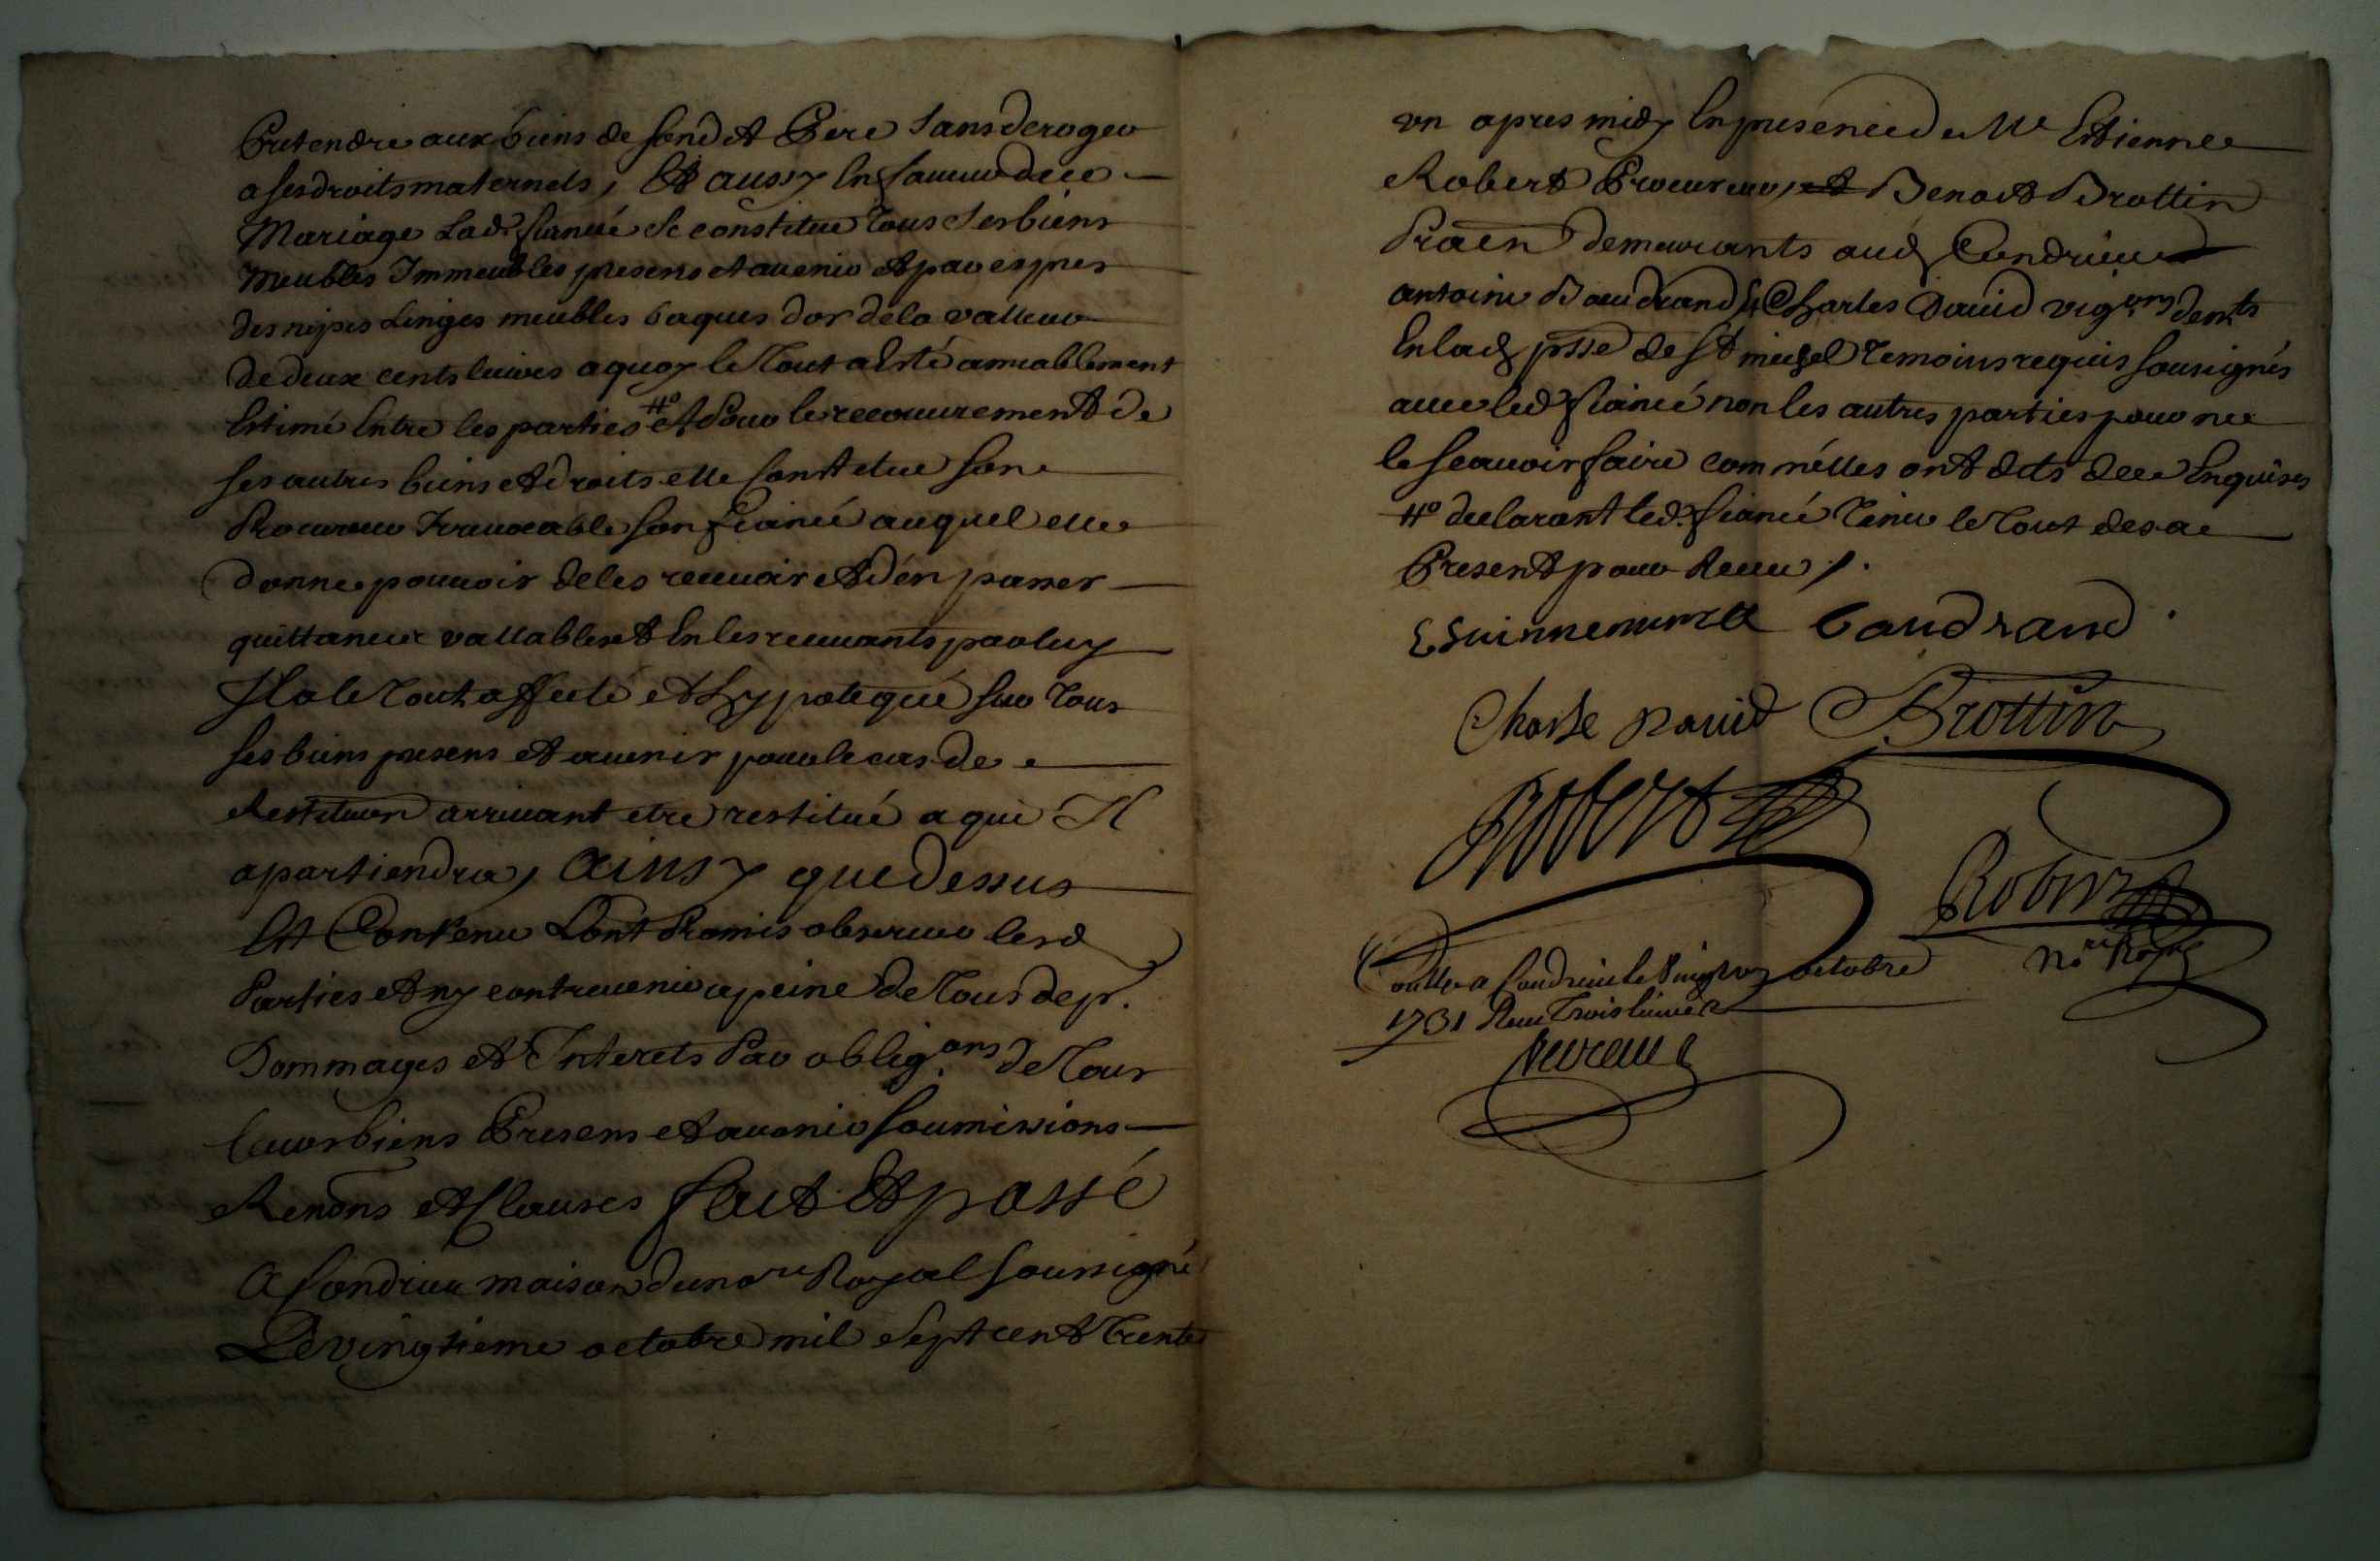 Pretendre aux biens de sond et Pere sans deroger
a ses droits maternels, Et aussy En faveur de ce
Mariage Lad. fiancée se constitue tous ses biens
Meubles Immeubles presens et avenir et par expres
des nipes Linges meubles bagues d'or de la valleur
de deux cents livres a quoy le tout a Esté amiablement
Estimé Entre les parties #o et Pour le recouvrement de
ses autres biens et droits elle constitue son
Procureur Irrevocable son fiancé auquel elle
donne pouvoir de les recevoir et d'en passer
quittances vallables et En les recevants par luy
Il a le tout affecté et hypotequé sur tous
ses biens presens et avenir pour le cas de
Restitution arrivant etre restitué a qui Il
apartiendra, ainsy que dessus
Et Contenu L'ont Promis observer lesd
Parties et n'y contrevenir a peine de tous dep.
Dommages et Interets Par oblig.ons de tous
leurs biens Presens et avenir soumissions
Renons et Clauses fait et passé
a Condrieu maison du nore Royal soussigné
Le vingtieme octobre mil sept cent trente
un apres midy En presence de Me Estienne
Robert Procureur, et Benoit Brottin
Praen demeurants aud Condrieu
antoine Baudrand & Charles David vig.ons dem.ts
En lad psse de St michel temoins requis sousignés
avec led fiancé non les autres parties pour ne
le scavoir faire comm'elles ont dits de ce Enquises
#o declarant led. fiancé tenir le tout des a
Present pour Receu ./.
baudrand
Charle David Brottin
Robert
Robert
no.re Royal
Con.lle a Condrieu le vingt octobre
1731 Receu Trois livres